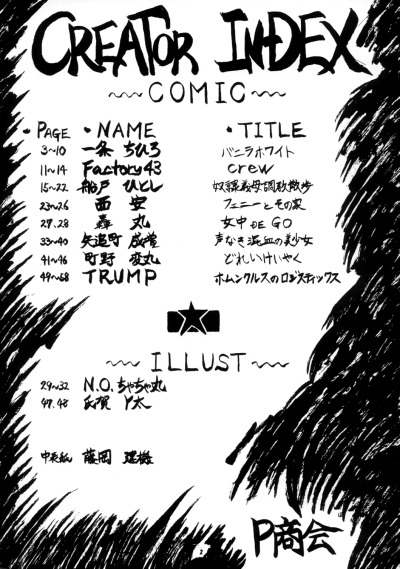 CREATOR INDEX
COMIC
・PAGE ・NAME ・TITLE
3~10 一条 ちひろ バニラホワイト
11~14 Factory43 crew
15~22 船戸 ひとし 奴隷義母調教散歩
23~26 西安 フェニーとその家
27.28 轟丸 女中 DE GO
33~40 矢追町 成増 声なき混血の美少女
41~46 町野 変丸 どれいけいやく
49~68 TRUMP ホムンクルスのロジスティックス
ILLUST
29~32 N.O.ちゃちゃ丸
47.48 氏賀 Y太
中表紙 藤岡
P商会